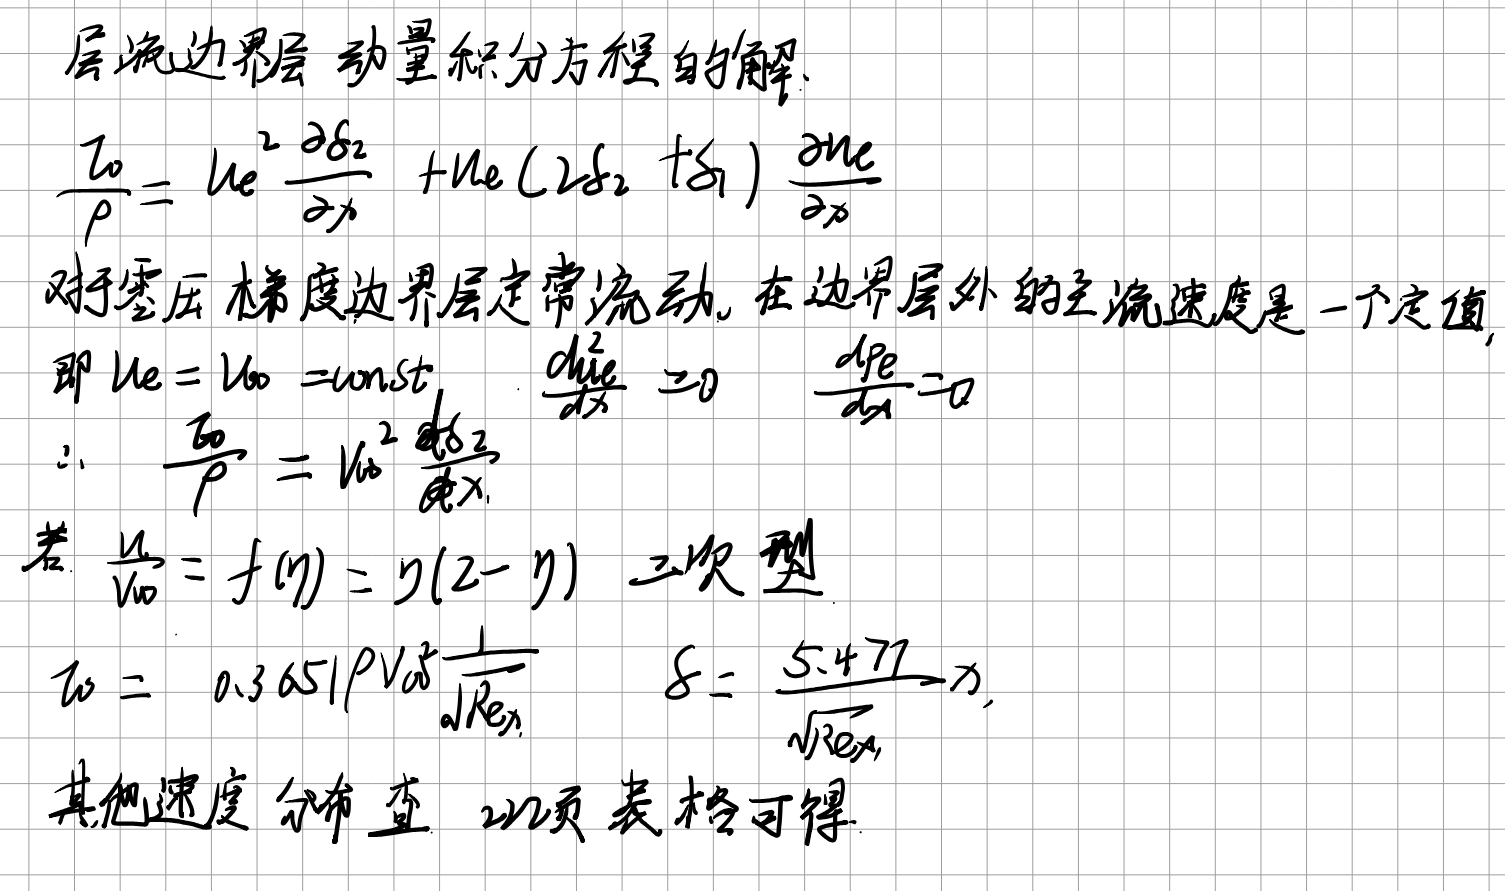 层流边界层动量积分方程的解.
τ₀/ρ = Ue² ∂δ₂/∂x + Ue(2δ₂ + δ₁) ∂Ue/∂x
对于零压梯度边界层定常流动, 在边界层外的主流速度是一个定值,
即 Ue = V∞ = const, dUe²/dx = 0 dPe/dx = 0
∴ τ₀/ρ = V∞² dδ₂/dx.
若 u/V∞ = f(η) = η(2-η) 二次型
τ₀ = 0.3651ρV∞² 1/√Reₓ δ = 5.477/√Reₓ x,
其他速度分布查 222页表格可得.